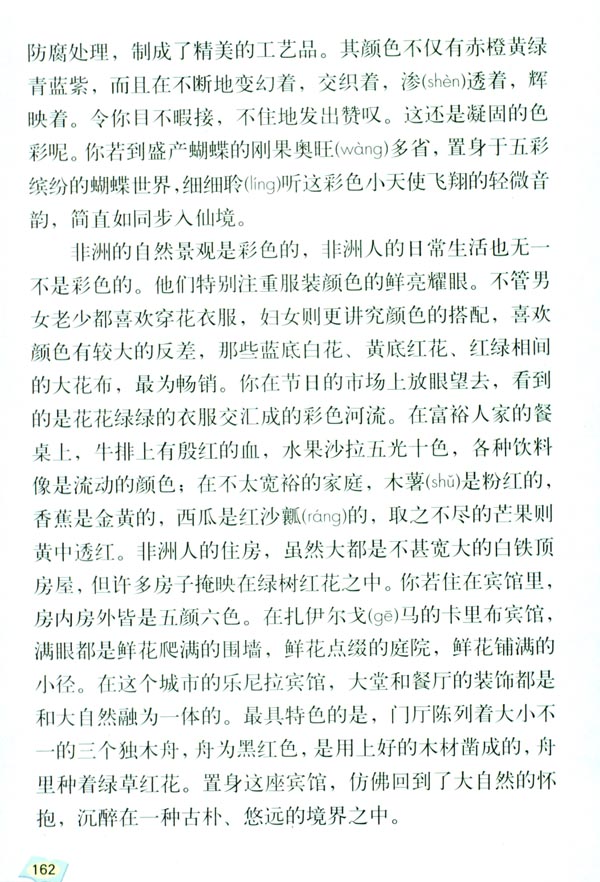 防腐处理，制成了精美的工艺品。其颜色不仅有赤橙黄绿
青蓝紫，而且在不断地变幻着，交织着，渗(shèn)透着，辉
映着。令你目不暇接，不住地发出赞叹。这还是凝固的色
彩呢。你若到盛产蝴蝶的刚果奥旺(wàng)多省，置身于五彩
缤纷的蝴蝶世界，细细聆(líng)听这彩色小天使飞翔的轻微音
韵，简直如同步入仙境。
非洲的自然景观是彩色的，非洲人的日常生活也无一
不是彩色的。他们特别注重服装颜色的鲜亮耀眼。不管男
女老少都喜欢穿花衣服，妇女则更讲究颜色的搭配，喜欢
颜色有较大的反差，那些蓝底白花、黄底红花、红绿相间
的大花布，最为畅销。你在节日的市场上放眼望去，看到
的是花花绿绿的衣服交汇成的彩色河流。在富裕人家的餐
桌上，牛排上有殷红的血，水果沙拉五光十色，各种饮料
像是流动的颜色；在不太宽裕的家庭，木薯(shǔ)是粉红的，
香蕉是金黄的，西瓜是红沙瓤(ráng)的，取之不尽的芒果则
黄中透红。非洲人的住房，虽然大都是不甚宽大的白铁顶
房屋，但许多房子掩映在绿树红花之中。你若住在宾馆里，
房内房外皆是五颜六色。在扎伊尔戈(gē)马的卡里布宾馆，
满眼都是鲜花爬满的围墙，鲜花点缀的庭院，鲜花铺满的
小径。在这个城市的乐尼拉宾馆，大堂和餐厅的装饰都是
和大自然融为一体的。最具特色的是，门厅陈列着大小不
一的三个独木舟，舟为黑红色，是用上好的木材凿成的，舟
里种着绿草红花。置身这座宾馆，仿佛回到了大自然的怀
抱，沉醉在一种古朴、悠远的境界之中。
162